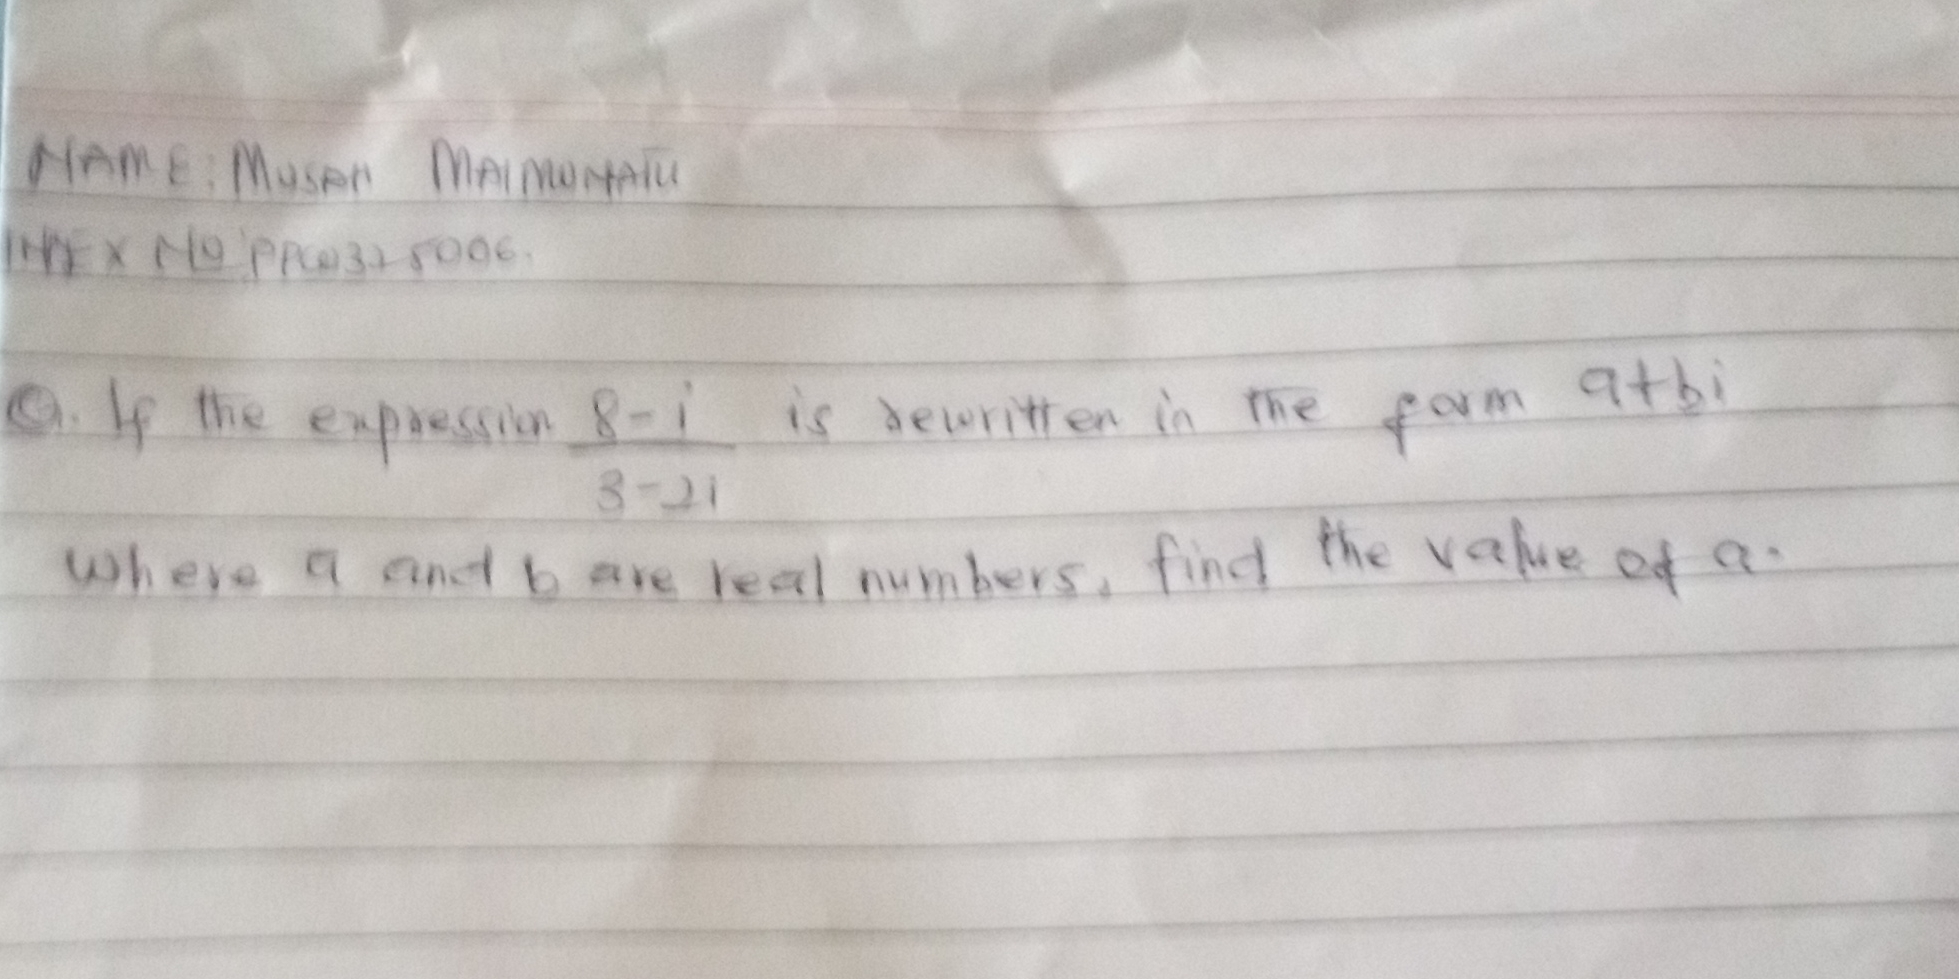 NAME: MUSAH MAIMUNATU
NO PPC0325006.
Q. If the expression 8-i is rewritten in the form a+bi
3-2i
where a and b are real numbers, find the value of a.